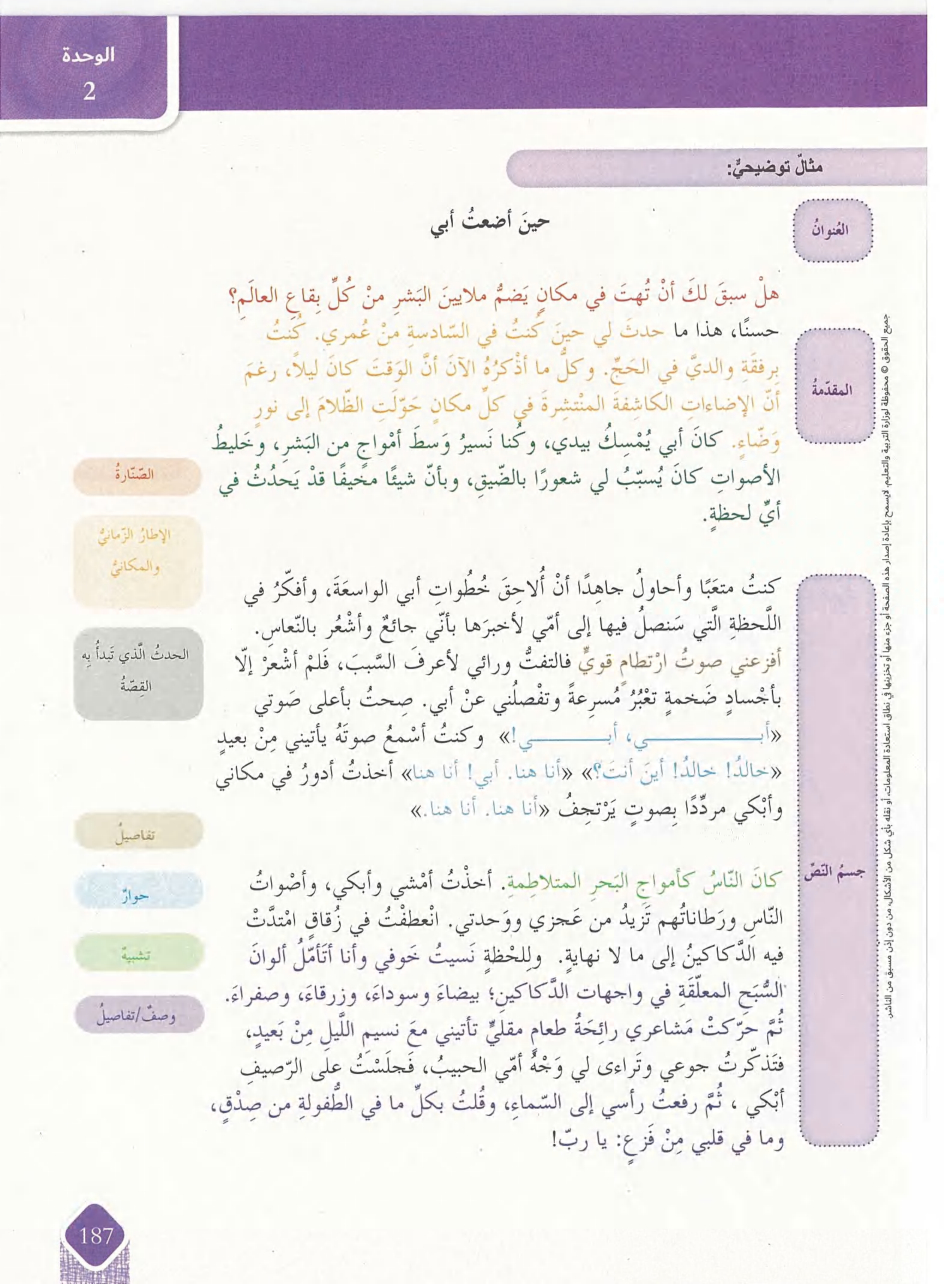 الوحدة
2
مثالٌ توضيحيٌّ:
العُنوانُ
حينَ أضعتُ أبي
المقدّمةُ
هلْ سبقَ لكَ أنْ تُهتَ في مكانٍ يَضمُّ ملايينَ البَشرِ منْ كُلِّ بِقاعِ العالَمِ؟
حسنًا، هذا ما حدثَ لي حينَ كُنتُ في السّادسةِ منْ عُمري. كُنتُ
بِرفقَةِ والديَّ في الحَجِّ. وكلُّ ما أذْكرُهُ الآنَ أنَّ الوَقتَ كانَ ليلاً، رغمَ
أنّ الإضاءاتِ الكاشِفةَ المنْتشِرةَ في كلِّ مكانٍ حَوّلَتِ الظّلامَ إلى نورٍ
وَضّاءٍ. كانَ أبي يُمْسِكُ بيدي، وكُنا نَسيرُ وَسطَ أمْواجٍ من البَشرِ، وخَليطُ
الأصواتِ كانَ يُسبّبُ لي شعورًا بالضّيقِ، وبأنّ شيئًا مخيفًا قدْ يَحدُثُ في
أيِّ لحظةٍ.
الصّنّارةُ
الإطارُ الزّمانيُّ
والمكانيُّ
الحدثُ الَّذي تَبدأُ بِه
القِصّةُ
جسمُ النّصِّ
كنتُ متعَبًا وأحاولُ جاهِدًا أنْ أُلاحِقَ خُطُواتِ أبي الواسعَةَ، وأفكّرُ في
اللَّحظةِ الَّتي سَنصلُ فيها إلى أمّي لأخبرَها بأنّي جائعٌ وأشْعُر بالنّعاسِ.
أفزعني صوتُ ارْتطامٍ قويٍّ فالتفتُّ ورائي لأعرفَ السَّببَ، فَلمْ أشْعرْ إلّا
بأجْسادٍ ضَخمةٍ تعْبُرُ مُسرعةً وتفْصلُني عنْ أبي. صِحتُ بأعلى صَوتي
«أبــــــــــي، أبـــــــي!» وكنتُ أسْمعُ صوتَهُ يأتيني مِنْ بعيدٍ
«خالدُ! خالدُ! أينَ أنتَ؟» «أنا هنا. أبي! أنا هنا» أخذتُ أدورُ في مكاني
وأبْكي مردِّدًا بِصوتٍ يَرْتجفُ «أنا هنا. أنا هنا.»
تفاصيلُ
حوارٌ
تشبيهٌ
وصفٌ/تفاصيلُ
كانَ النّاسُ كأمواجِ البَحرِ المتلاطِمةِ. أخذْتُ أمْشي وأبكي، وأصْواتُ
النّاسِ ورَطاناتُهم تَزيدُ من عَجزي ووَحدتي. انْعطفْتُ في زُقاقٍ امْتدَّتْ
فيه الدَّكاكينُ إلى ما لا نهايةٍ. وللحْظةٍ نَسيتُ خَوفي وأنا أتَأمّلُ ألوانَ
السُّبَحِ المعلّقَةِ في واجهات الدَّكاكينِ؛ بيضاءَ وسوداءَ، وزرقاءَ، وصفراءَ.
ثُمَّ حرّكتْ مَشاعري رائحَةُ طعامٍ مقليٍّ تأتيني معَ نسيمِ اللَّيلِ مِنْ بَعيدٍ،
فتَذكّرتُ جوعي وتَراءى لي وَجْهُ أمّي الحبيبُ، فَجلَسْتُ على الرّصيفِ
أبْكي ، ثُمَّ رفعتُ رأسي إلى السّماءِ، وقُلتُ بكلِّ ما في الطُّفولةِ من صِدْقٍ،
وما في قلبي مِنْ فَزعٍ: يا ربّ!
جميع الحقوق © محفوظة لوزارة التربية والتعليم. لايسمح بإعادة إصدار هذه الصفحة أو جزء منها أو تخزينها في نطاق استعادة المعلومات، أو نقله بأي شكل من الأشكال، من دون إذن مسبق من الناشر.
187